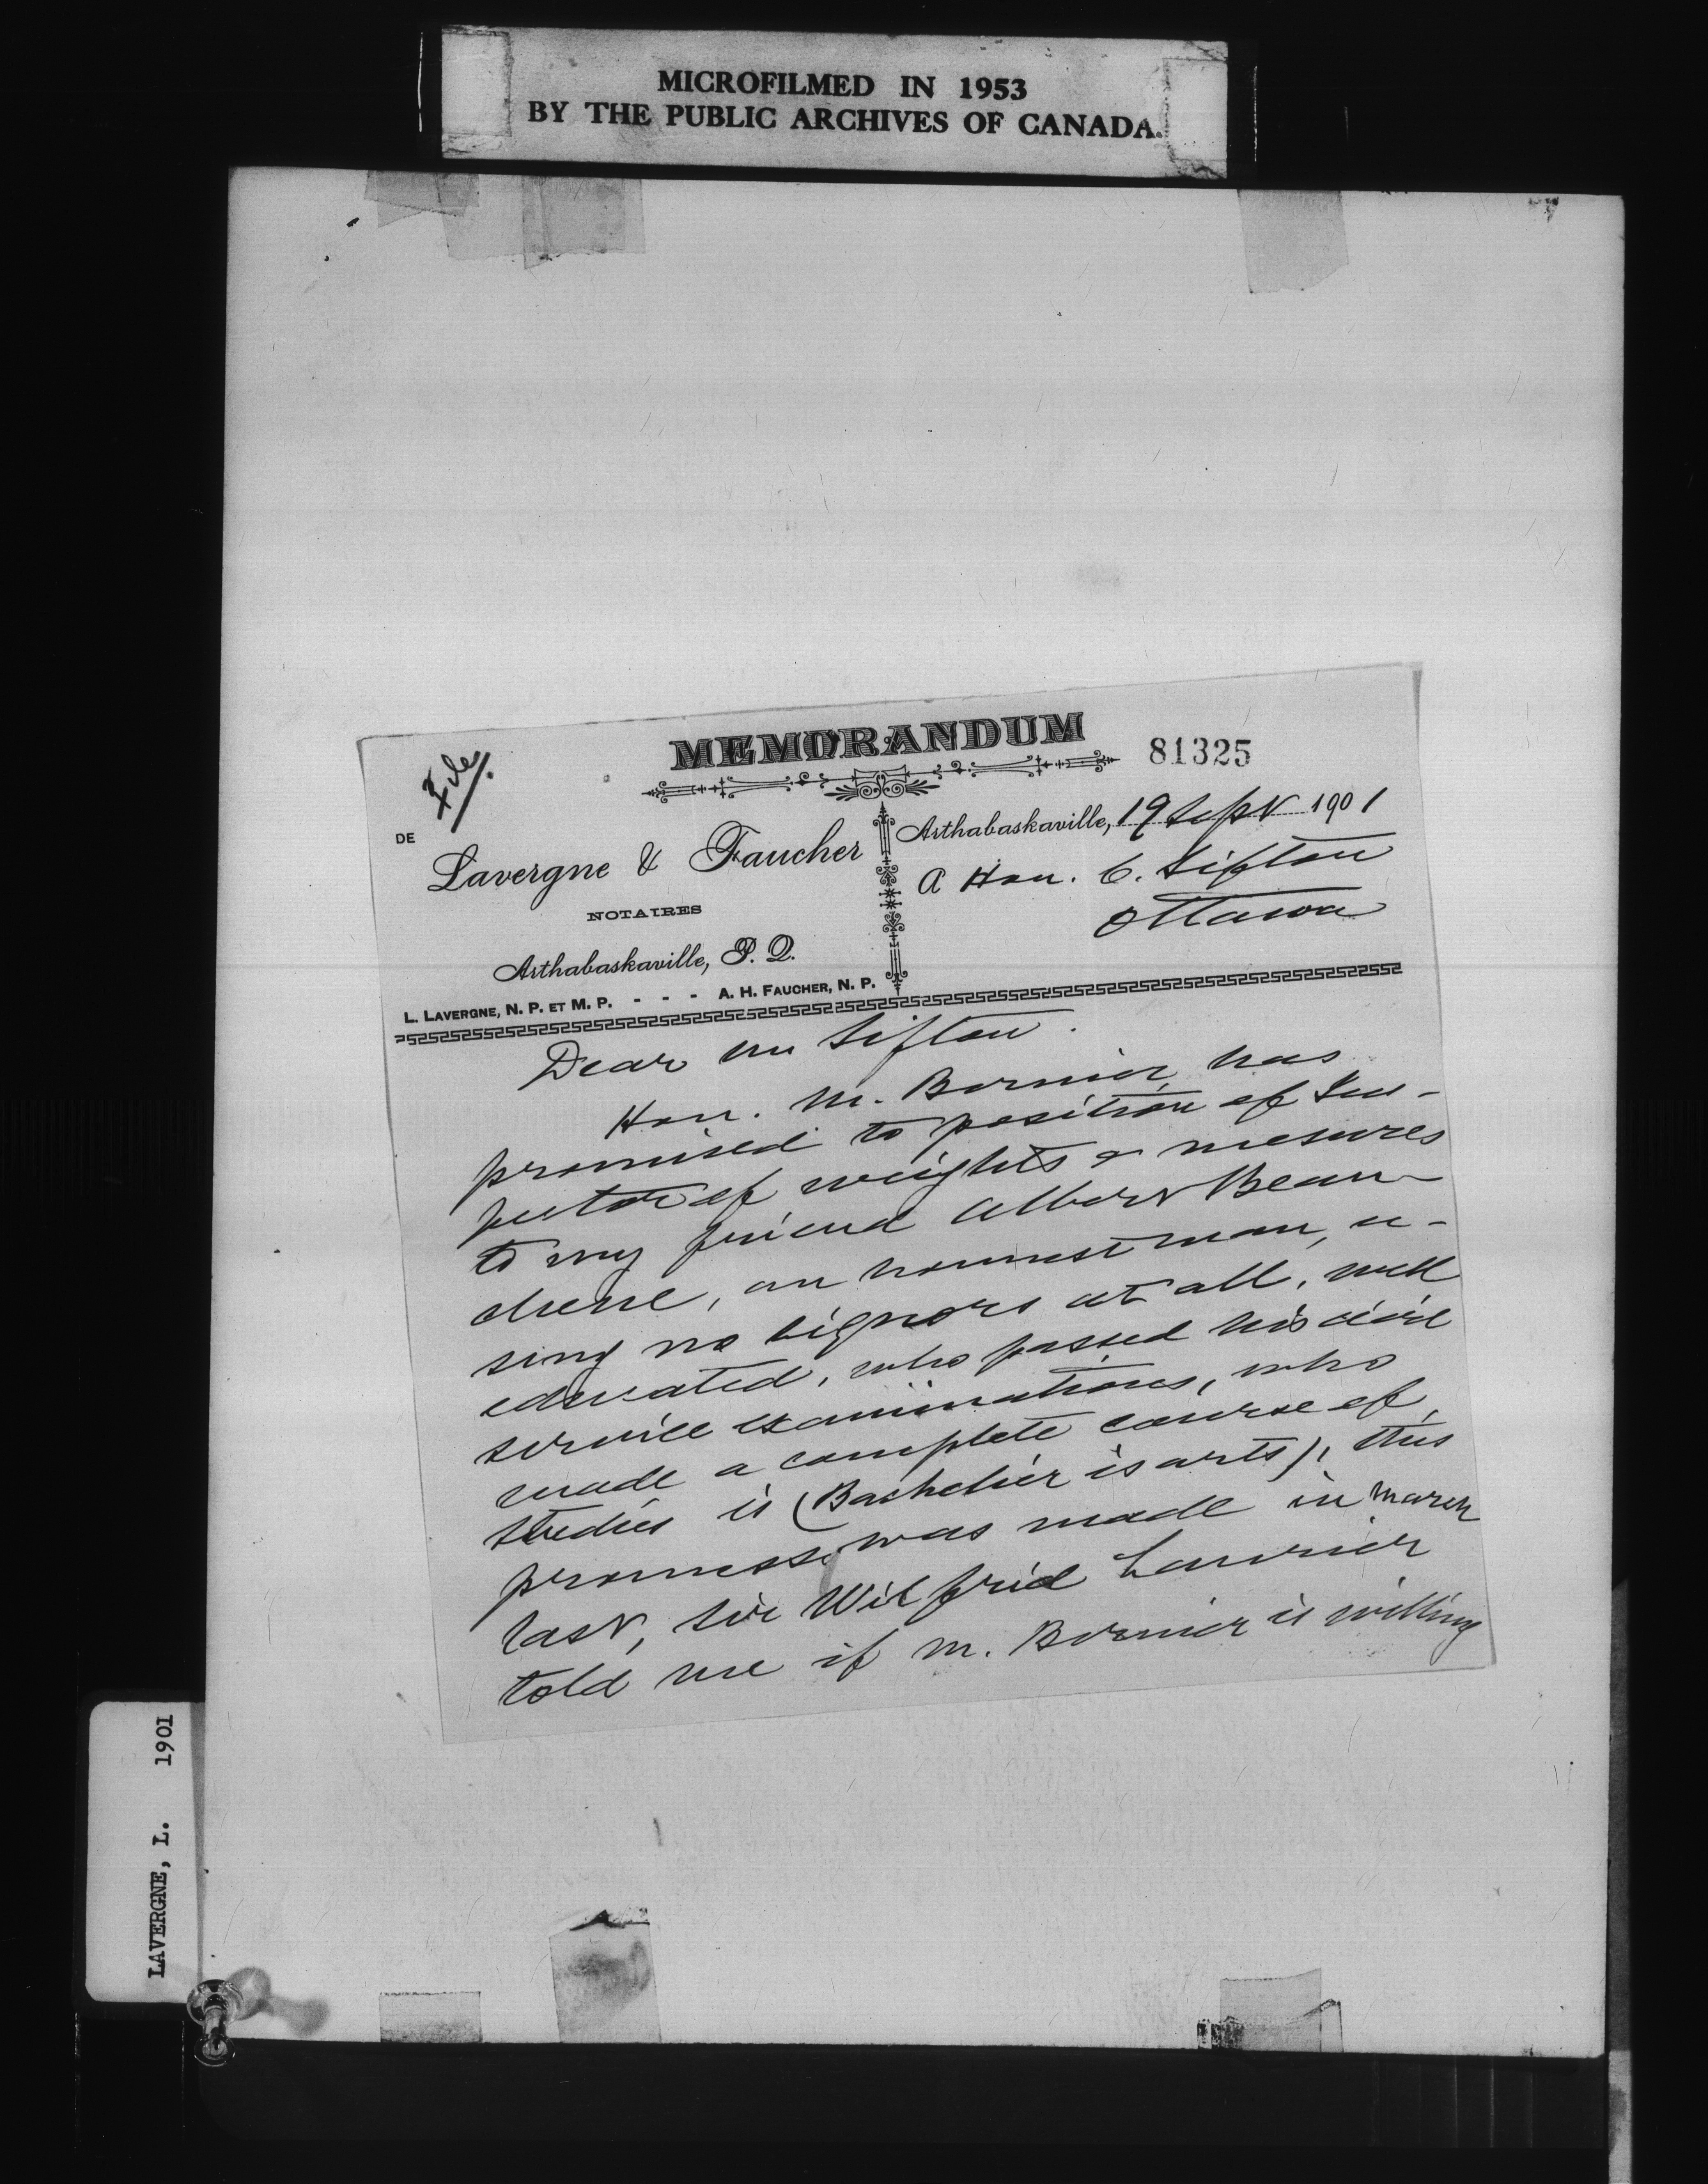 MICROFILMED IN 1953
BY THE PUBLIC ARCHIVES OF CANADA.
File.
MEMORANDUM
81325
DE
Lavergne & Faucher
NOTAIRES
Arthabaskaville, P. Q.
L. LAVERGNE, N. P. ET M. P. - - - A. H. FAUCHER, N. P.
Arthabaskaville, 19 Sept 1901
A Hon. C. Sifton
Ottawa
Dear Mr Sifton.
Hon. M. Bernier has
promised to position of Ins-
pector of weights & mesures
to my friend Albert Beau-
chesne, an honnest man, u-
sing no liquors at all, well
educated, who passed his civil
service examinations, who
made a complete course of
studies is (Bachelier is arts), this
promess was made in March
last, Sir Wilfrid Laurier
told me if M. Bernier is willing
LAVERGNE, L. 1901